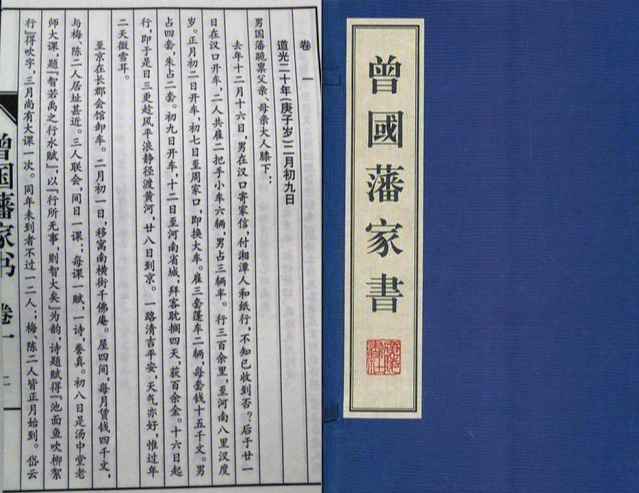 曾國藩家書
卷一
道光二十年(庚子岁)二月初九日
男国藩跪禀父亲、母亲大人膝下:
去年十二月十六日,男在汉口寄家信,付湘潭人和纸行,不知已收到否?后于廿一
日在汉口开车,二人共雇二把手小车六辆,男占三辆半。行三百余里,至河南八里汊度
岁。正月初二日开车,初七日至周家口,即换大车。雇三套篷车二辆,每套钱十五千文。男
占四套,朱占二套。初九日开车,十二日至河南省城,拜客耽搁四天,获百余金。十六日起
行,即于是日三更趁风平浪静径渡黄河,廿八日到京。一路清吉平安,天气亦好,惟过年
二天微雪耳。
至京在长郡会馆卸车。二月初一日,移寓南横街千佛庵。屋四间,每月赁钱四千文,
与梅、陈二人居址甚近。三人联会,间日一课;每课一赋、一诗,誊真。初八日是汤中堂老
师大课,题『智若禹之行水赋』,以『行所无事,则智大矣』为韵,诗题赋得『池面鱼吹柳絮
行』得吹字。三月尚有大课一次。同年未到者不过一二人;梅、陈二人皆正月始到。岱云
曾国藩家书 卷一 二